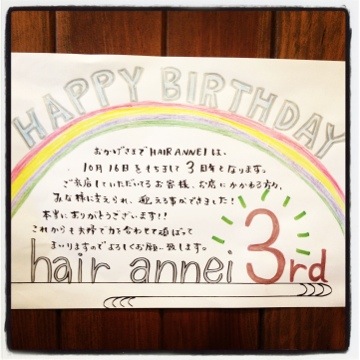 HAPPY BIRTHDAY
おかげさまで HAIR ANNEI は、
10月16日をもちまして 3周年となります。
ご来店していただいてるお客様、お店にかかわる方々、
みな様に支えられ、迎える事ができました!
本当にありがとうございます!!
これからも夫婦で力を合わせて頑ばって
まいりますのでよろしくお願い致します。
hair annei 3rd